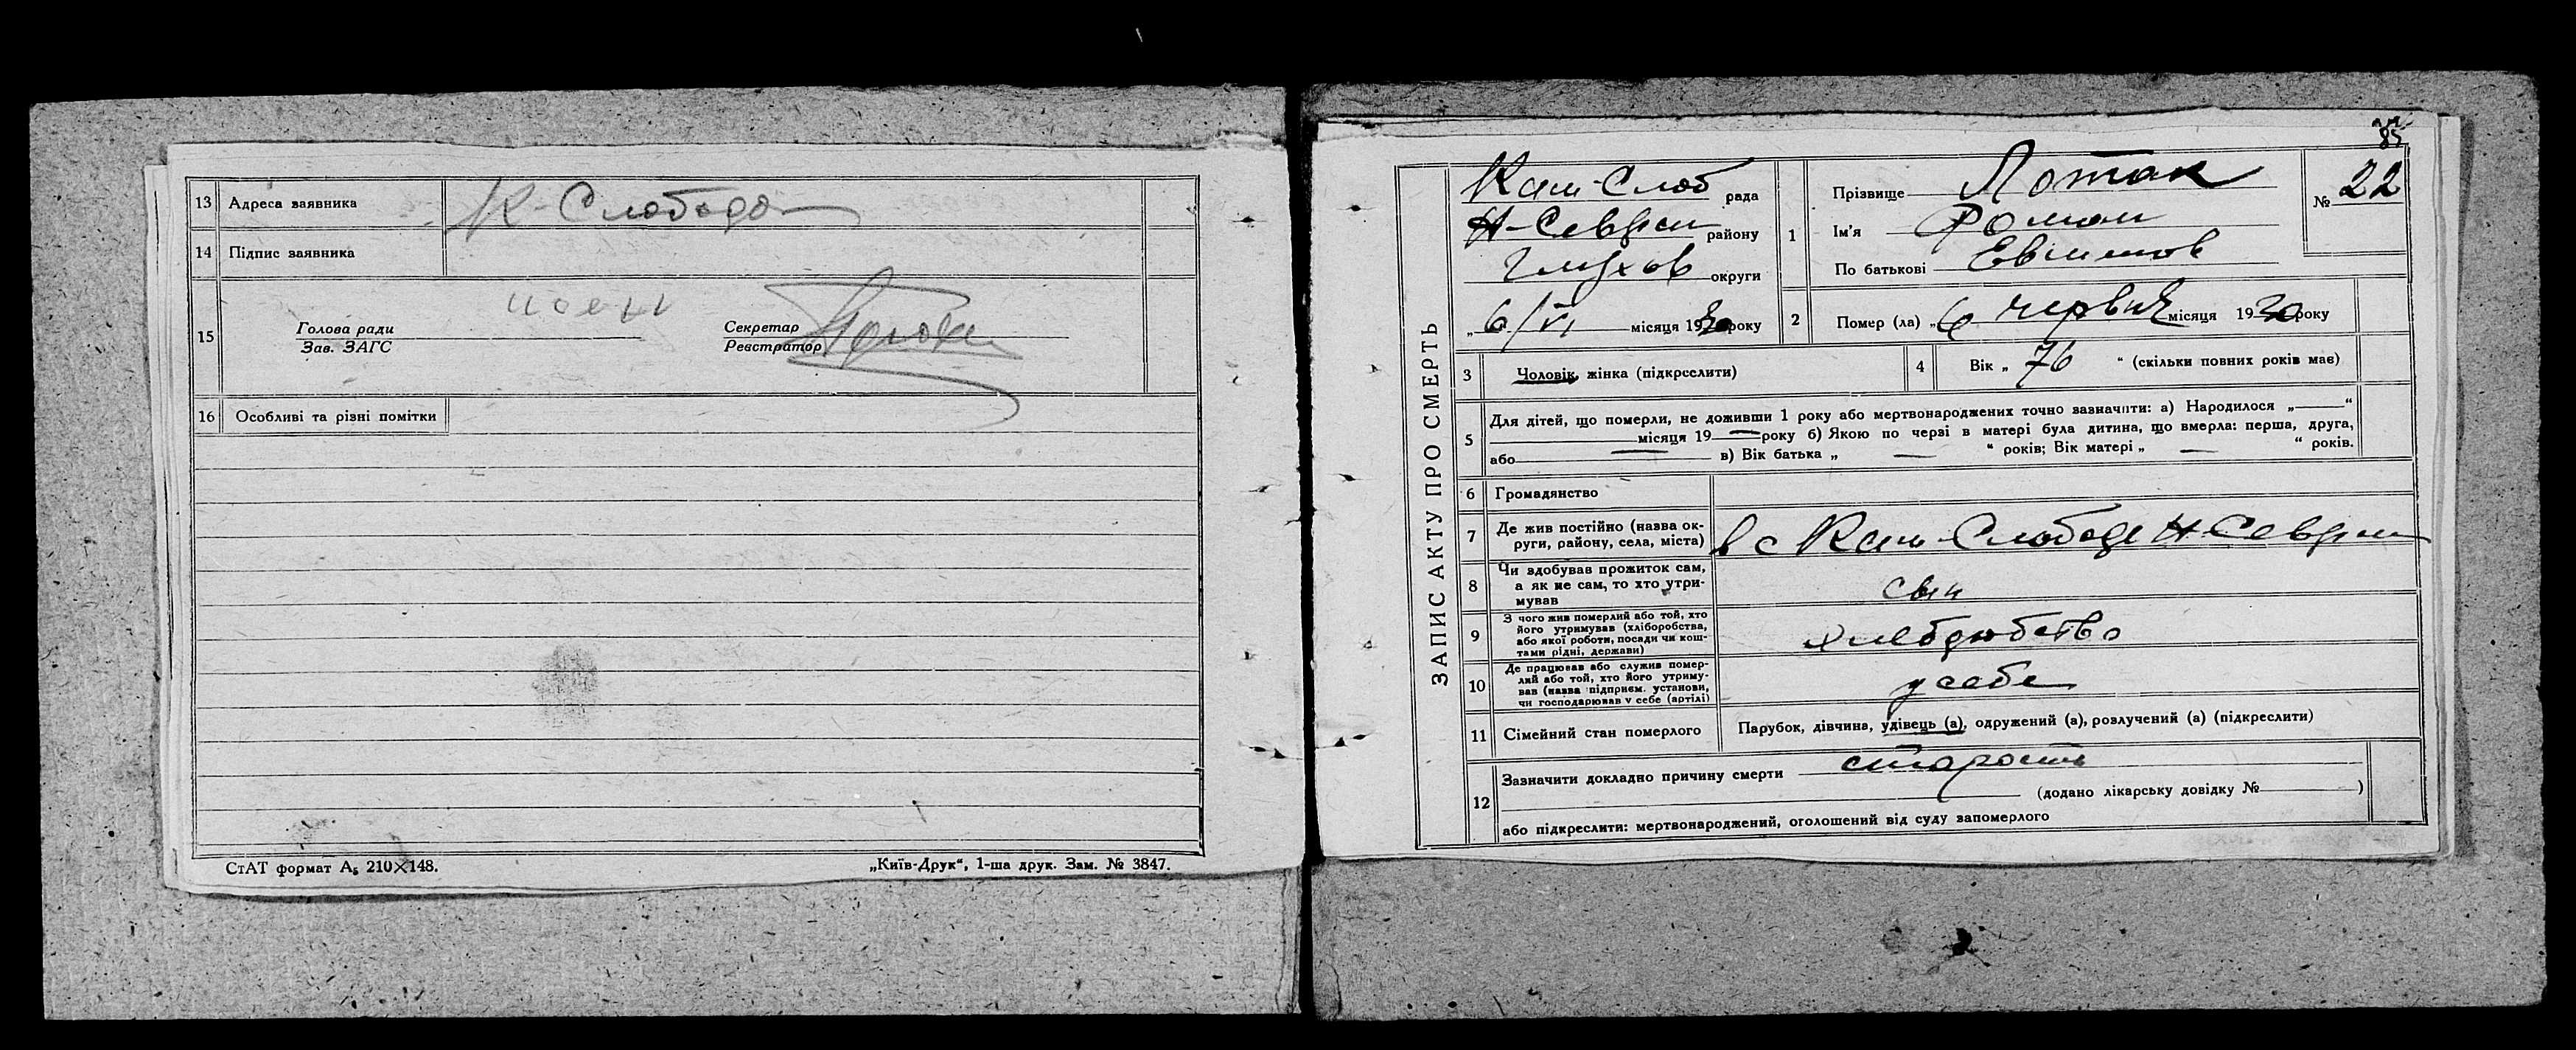 13 Адреса заявника К-Слобода
14 Підпис заявника
15 Голова ради
Зав. ЗАГС
Секретар
Реєстратор
16 Особливі та різні помітки
СтАТ формат А₅ 210×148.
„Київ-Друк“, 1-ша друк. Зам. № 3847.
85
ЗАПИС АКТУ ПРО СМЕРТЬ
Кам-Слоб рада
Н-Севрск району
Глухов округи
„ 6/VI місяця 1930 року
1 Прізвище Потак
Ім'я Роман
По батькові Евхимов
№ 22
2 Помер (ла) „6 червня місяця 1930 року
3 Чоловік, жінка (підкреслити)
4 Вік „ 76 “ (скільки повних років має)
5 Для дітей, що померли, не доживши 1 року або мертвонароджених точно зазначити: а) Народилося „—“
місяця 19—року б) Якою по черзі в матері була дитина, що вмерла: перша, друга,
або — в) Вік батька „ — “ років; Вік матері „ — “ років.
6 Громадянство
7 Де жив постійно (назва ок-
руги, району, села, міста) в с Кам-Слободе Н-Севрск
8 Чи здобував прожиток сам,
а як не сам, то хто утри-
мував
9 З чого жив померлий або той, хто
його утримував (хліборобства,
або якої роботи, посади чи кош-
тами рідні, держави)
10 Де працював або служив помер-
лий або той, хто його утриму-
вав (назва підприєм. установи,
чи господарював у себе (артілі) у себе
11 Сімейний стан померлого Парубок, дівчина, удівець (а), одружений (а), розлучений (а) (підкреслити)
12 Зазначити докладно причину смерти старость
(додано лікарську довідку № )
або підкреслити: мертвонароджений, оголошений від суду запомерлого